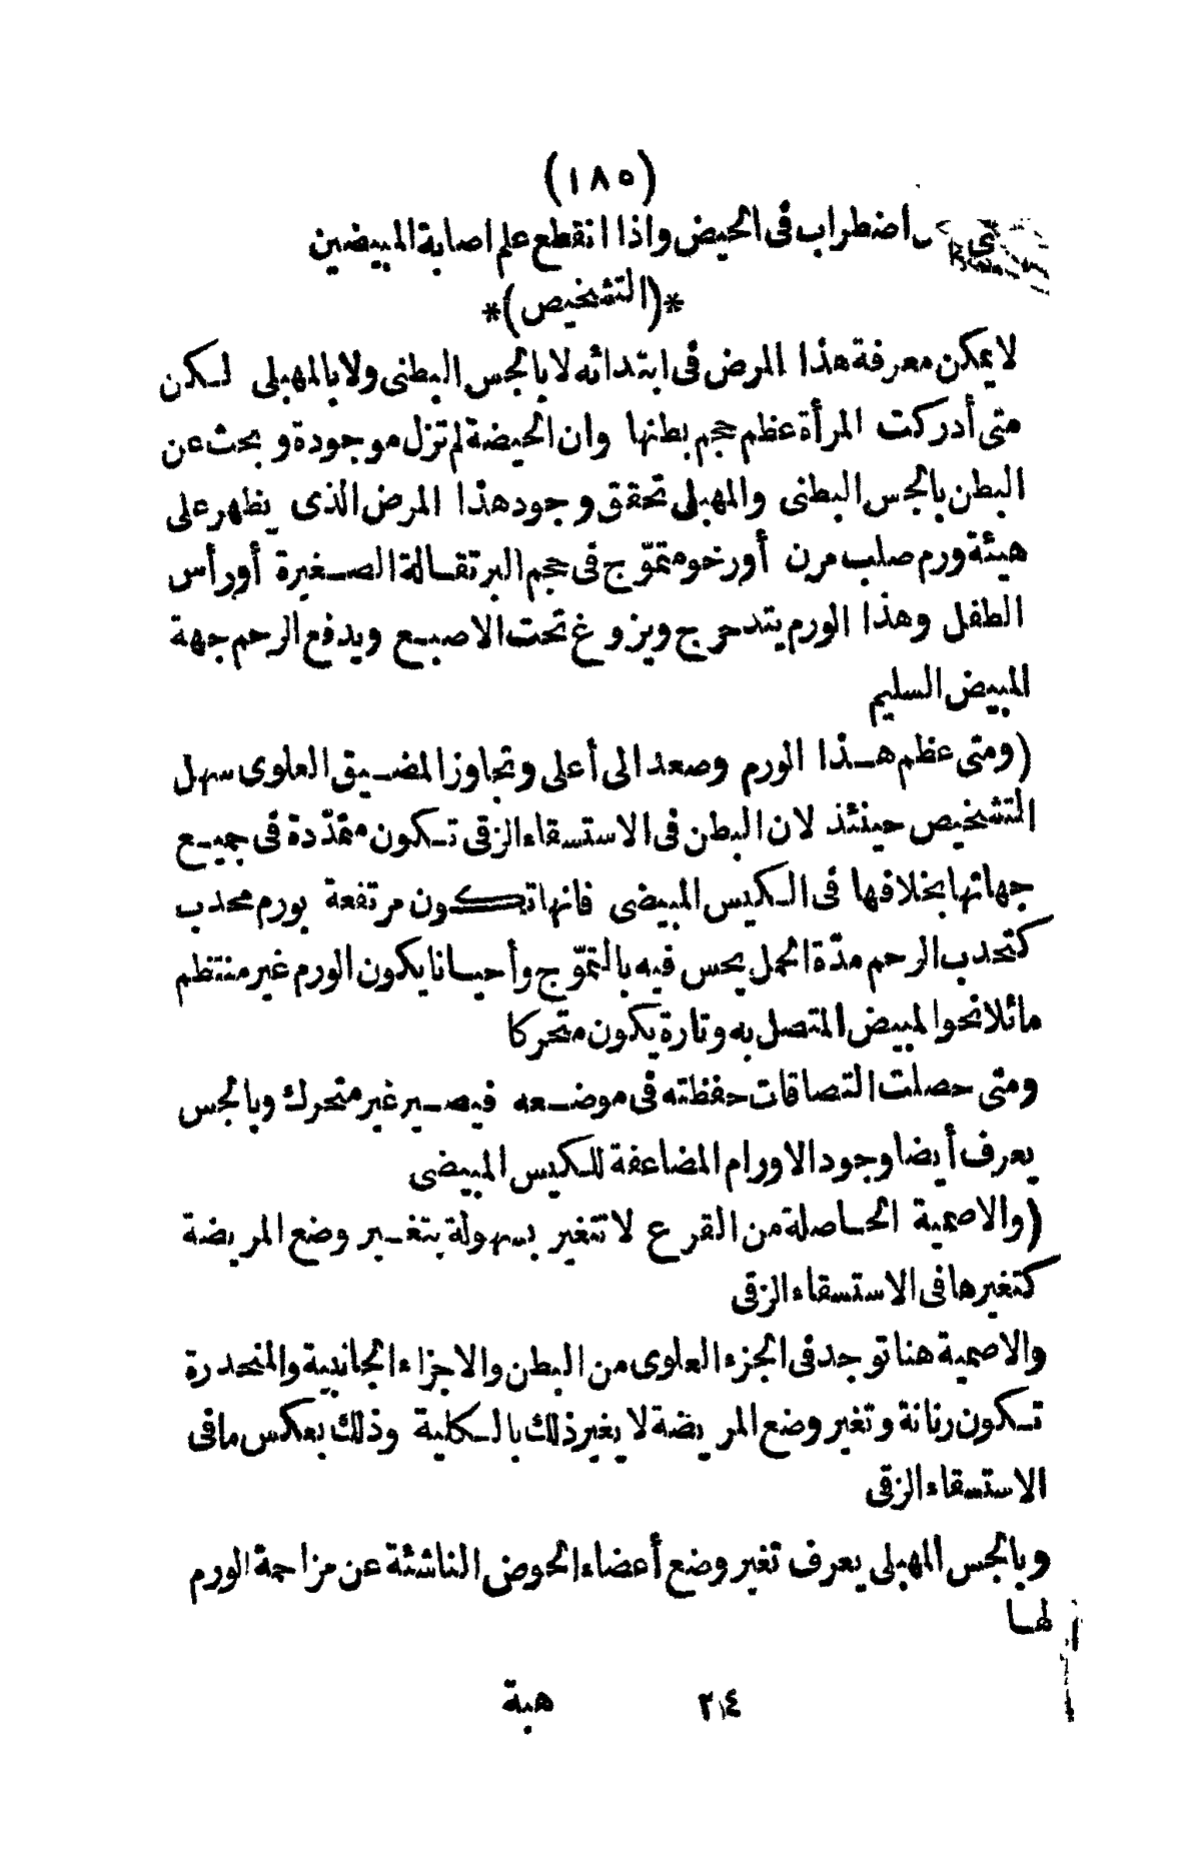 (١٨٥)
اضطراب فى الحيض واذا انقطع علم اصابة المبيضين
*(التشخيص)*
لا يمكن معرفة هذا المرض فى ابتدائه لا بالجس البطنى ولا بالمهبلى لكن
متى أدركت المرأة عظم حجم بطنها وان الحيضة لم تزل موجودة و بحث عن
البطن بالجس البطنى والمهبلى تحقق وجود هذا المرض الذى يظهر على
هيئة ورم صلب مرن أو رخو متموّج فى حجم البرتقالة الصغيرة أو رأس
الطفل وهذا الورم يتدحرج ويزوغ تحت الاصبع ويدفع الرحم جهة
المبيض السليم
(ومتى عظم هذا الورم وصعد الى أعلى وتجاوز المضيق العلوى سهل
التشخيص حينئذ لان البطن فى الاستسقاء الزقى تكون ممتدّة فى جميع
جهاتها بخلافها فى الكيس المبيضى فانها تكون مرتفعة بورم محدب
كتحدب الرحم مدّة الحمل يحس فيه بالتموّج وأحيانا يكون الورم غير منتظم
مائلا نحو المبيض المتصل به وتارة يكون متحركا
ومتى حصلت التصاقات حفظته فى موضعه فيصير غير متحرك وبالجس
يعرف أيضا وجود الاورام المضاعفة للكيس المبيضى
(والاصمية الحاصلة من القرع لا تتغير بسهولة بتغير وضع المريضة
كتغيرها فى الاستسقاء الزقى
والاصمية هنا توجد فى الجزء العلوى من البطن والاجزاء الجانبية والمنحدرة
تكون رنانة وتغير وضع المريضة لا يغير ذلك بالكلية وذلك بعكس ما فى
الاستسقاء الزقى
وبالجس المهبلى يعرف تغير وضع أعضاء الحوض الناشئة عن مزاحمة الورم
لها
٢٤ هبة